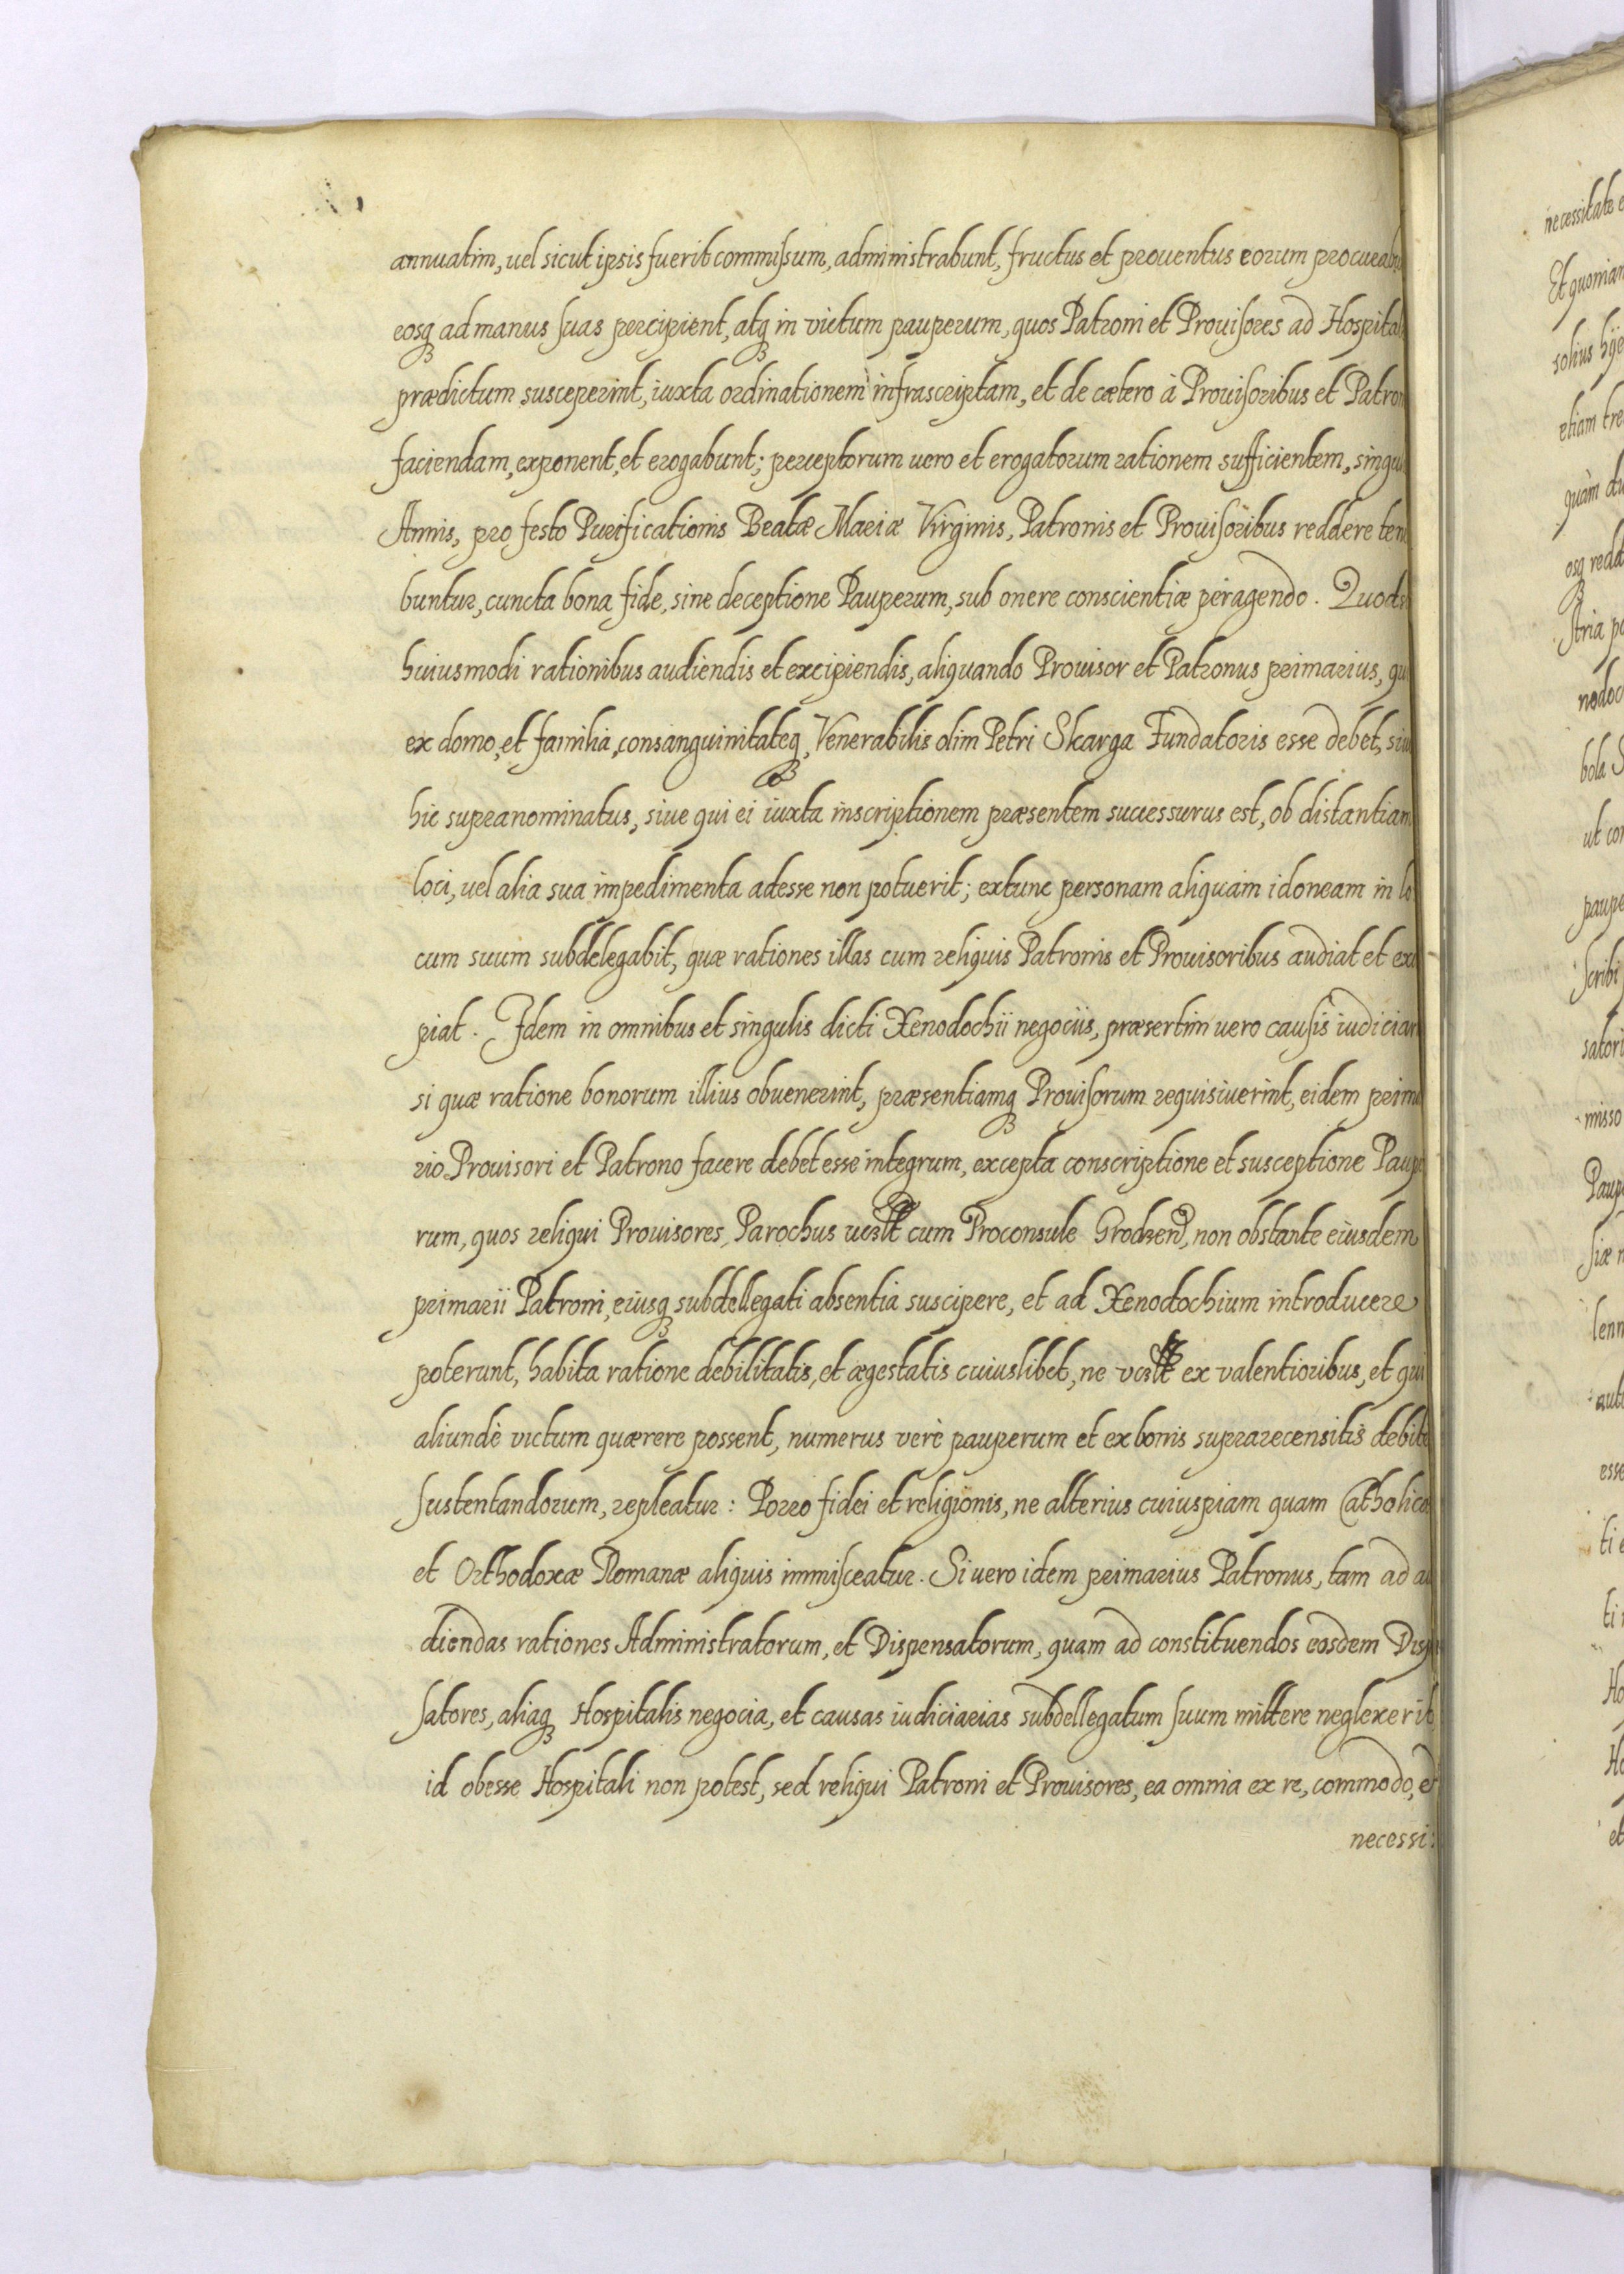 annuatim, uel sicut ipsis fuerit commissum, administrabunt, fructus et prouentus eorum procurab
eosq3 ad manus suas percipient, atq3 in victum pauperum, quos Patroni et Prouisores ad Hospital
prædictum susceperint, iuxta ordinationem infrascriptam, et de cætero à Prouisoribus et Patron
faciendam, exponent, et erogabunt; perceptorum uero et erogatorum rationem sufficientem, singu
Annis, pro festo Purificationis Beatæ Mariæ Virginis, Patronis et Prouisoribus reddere ten
buntur, cuncta bona fide, sine deceptione Pauperum, sub onere conscientiæ peragendo. Quods
huiusmodi rationibus audiendis et excipiendis, aliquando Prouisor et Patronus primarius, qu
ex domo, et familia, consanguinitateq3, Venerabilis olim Petri Skarga Fundatoris esse debet, siu
hic supranominatus, siue qui ei iuxta inscriptionem præsentem successurus est, ob distantiam
loci, uel alia sua impedimenta adesse non potuerit; extunc personam aliquam idoneam in lo
cum suum subdelegabit, quæ rationes illas cum reliquis Patronis et Prouisoribus audiat et exci
piat. Idem in omnibus et singulis dicti Xenodochii negociis, præsertim uero causis iudiciar
si quæ ratione bonorum illius obuenerint, præsentiamq3 Prouisorum requisiuerint, eidem prima
rio Prouisori et Patrono facere debet esse integrum, excepta conscriptione et susceptione Paupe
rum, quos reliqui Prouisores, Parochus cum Proconsule Grodzen, non obstante eiusdem
primarii Patroni, eiusq3 subdellegati absentia suscipere, et ad Xenodochium introducere
poterunt, habita ratione debilitatis, et ægestatis cuiuslibet, ne ex valentioribus, et qui
aliundè victum quærere possent, numerus verè pauperum et ex bonis suprarecensitis debitè
sustentandorum, repleatur: Porro fidei et religionis, ne alterius cuiuspiam quam Catholicæ
et Orthodoxæ Romanæ aliquis immisceatur. Si uero idem primarius Patronus, tam ad au
diendas rationes Administratorum, et Dispensatorum, quam ad constituendos eosdem Disp
satores, aliaq3 Hospitalis negocia, et causas iudiciarias subdellegatum suum mittere neglexerit
id obesse Hospitali non potest, sed reliqui Patroni et Prouisores, ea omnia ex re, commodo, et
necessi: